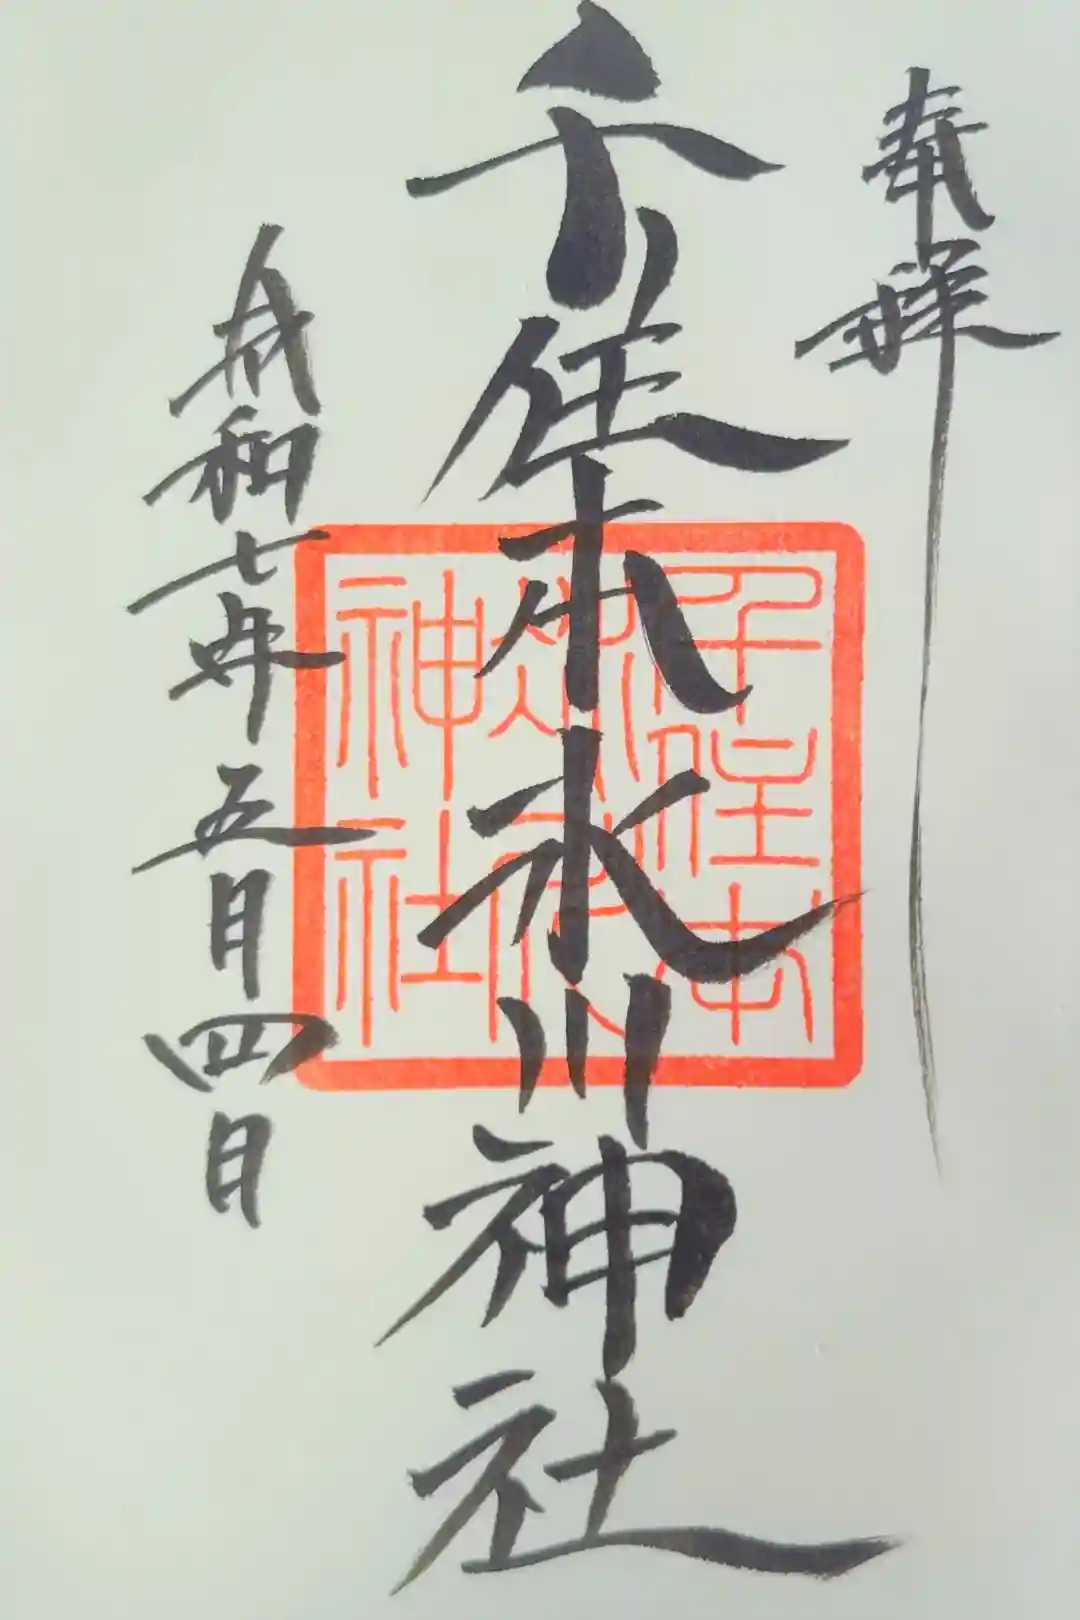 奉拝
千住本氷川神社
千住本
氷川
神社
令和七年五月四日